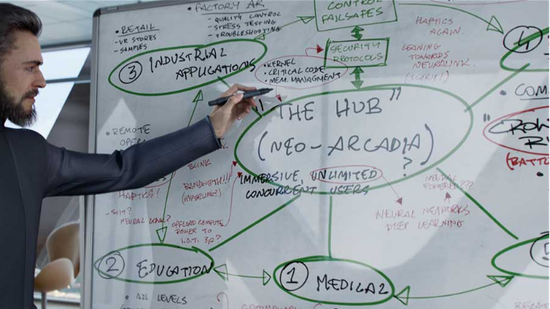 • RETAIL
- VR STORES
- SAMPLES
FACTORY AR
- QUALITY CONTROL
- STRESS TESTING
- TROUBLESHOOTING
CONTROL
FAILSAFES
SECURITY
PROTOCOLS
HAPTICS
AGAIN
LEANING
TOWARDS
NEURALINK
3 INDUSTRIAL
APPLICATIONS
• KERNEL
• CRITICAL CODE
• MEM. MANAGMENT
"THE HUB"
(NEO-ARCADIA)
?
IMMERSIVE, UNLIMITED
CONCURRENT USERS
• REMOTE
HAPTICS!
BLINK
BANDWIDTH!!!
OFFLOAD COMPUTE
POWER TO
NEURAL NETWORKS
DEEP LEARNING
2 EDUCATION
1 MEDICAL
• ALL LEVELS
4
COM
CROW
R
(BATTL
5